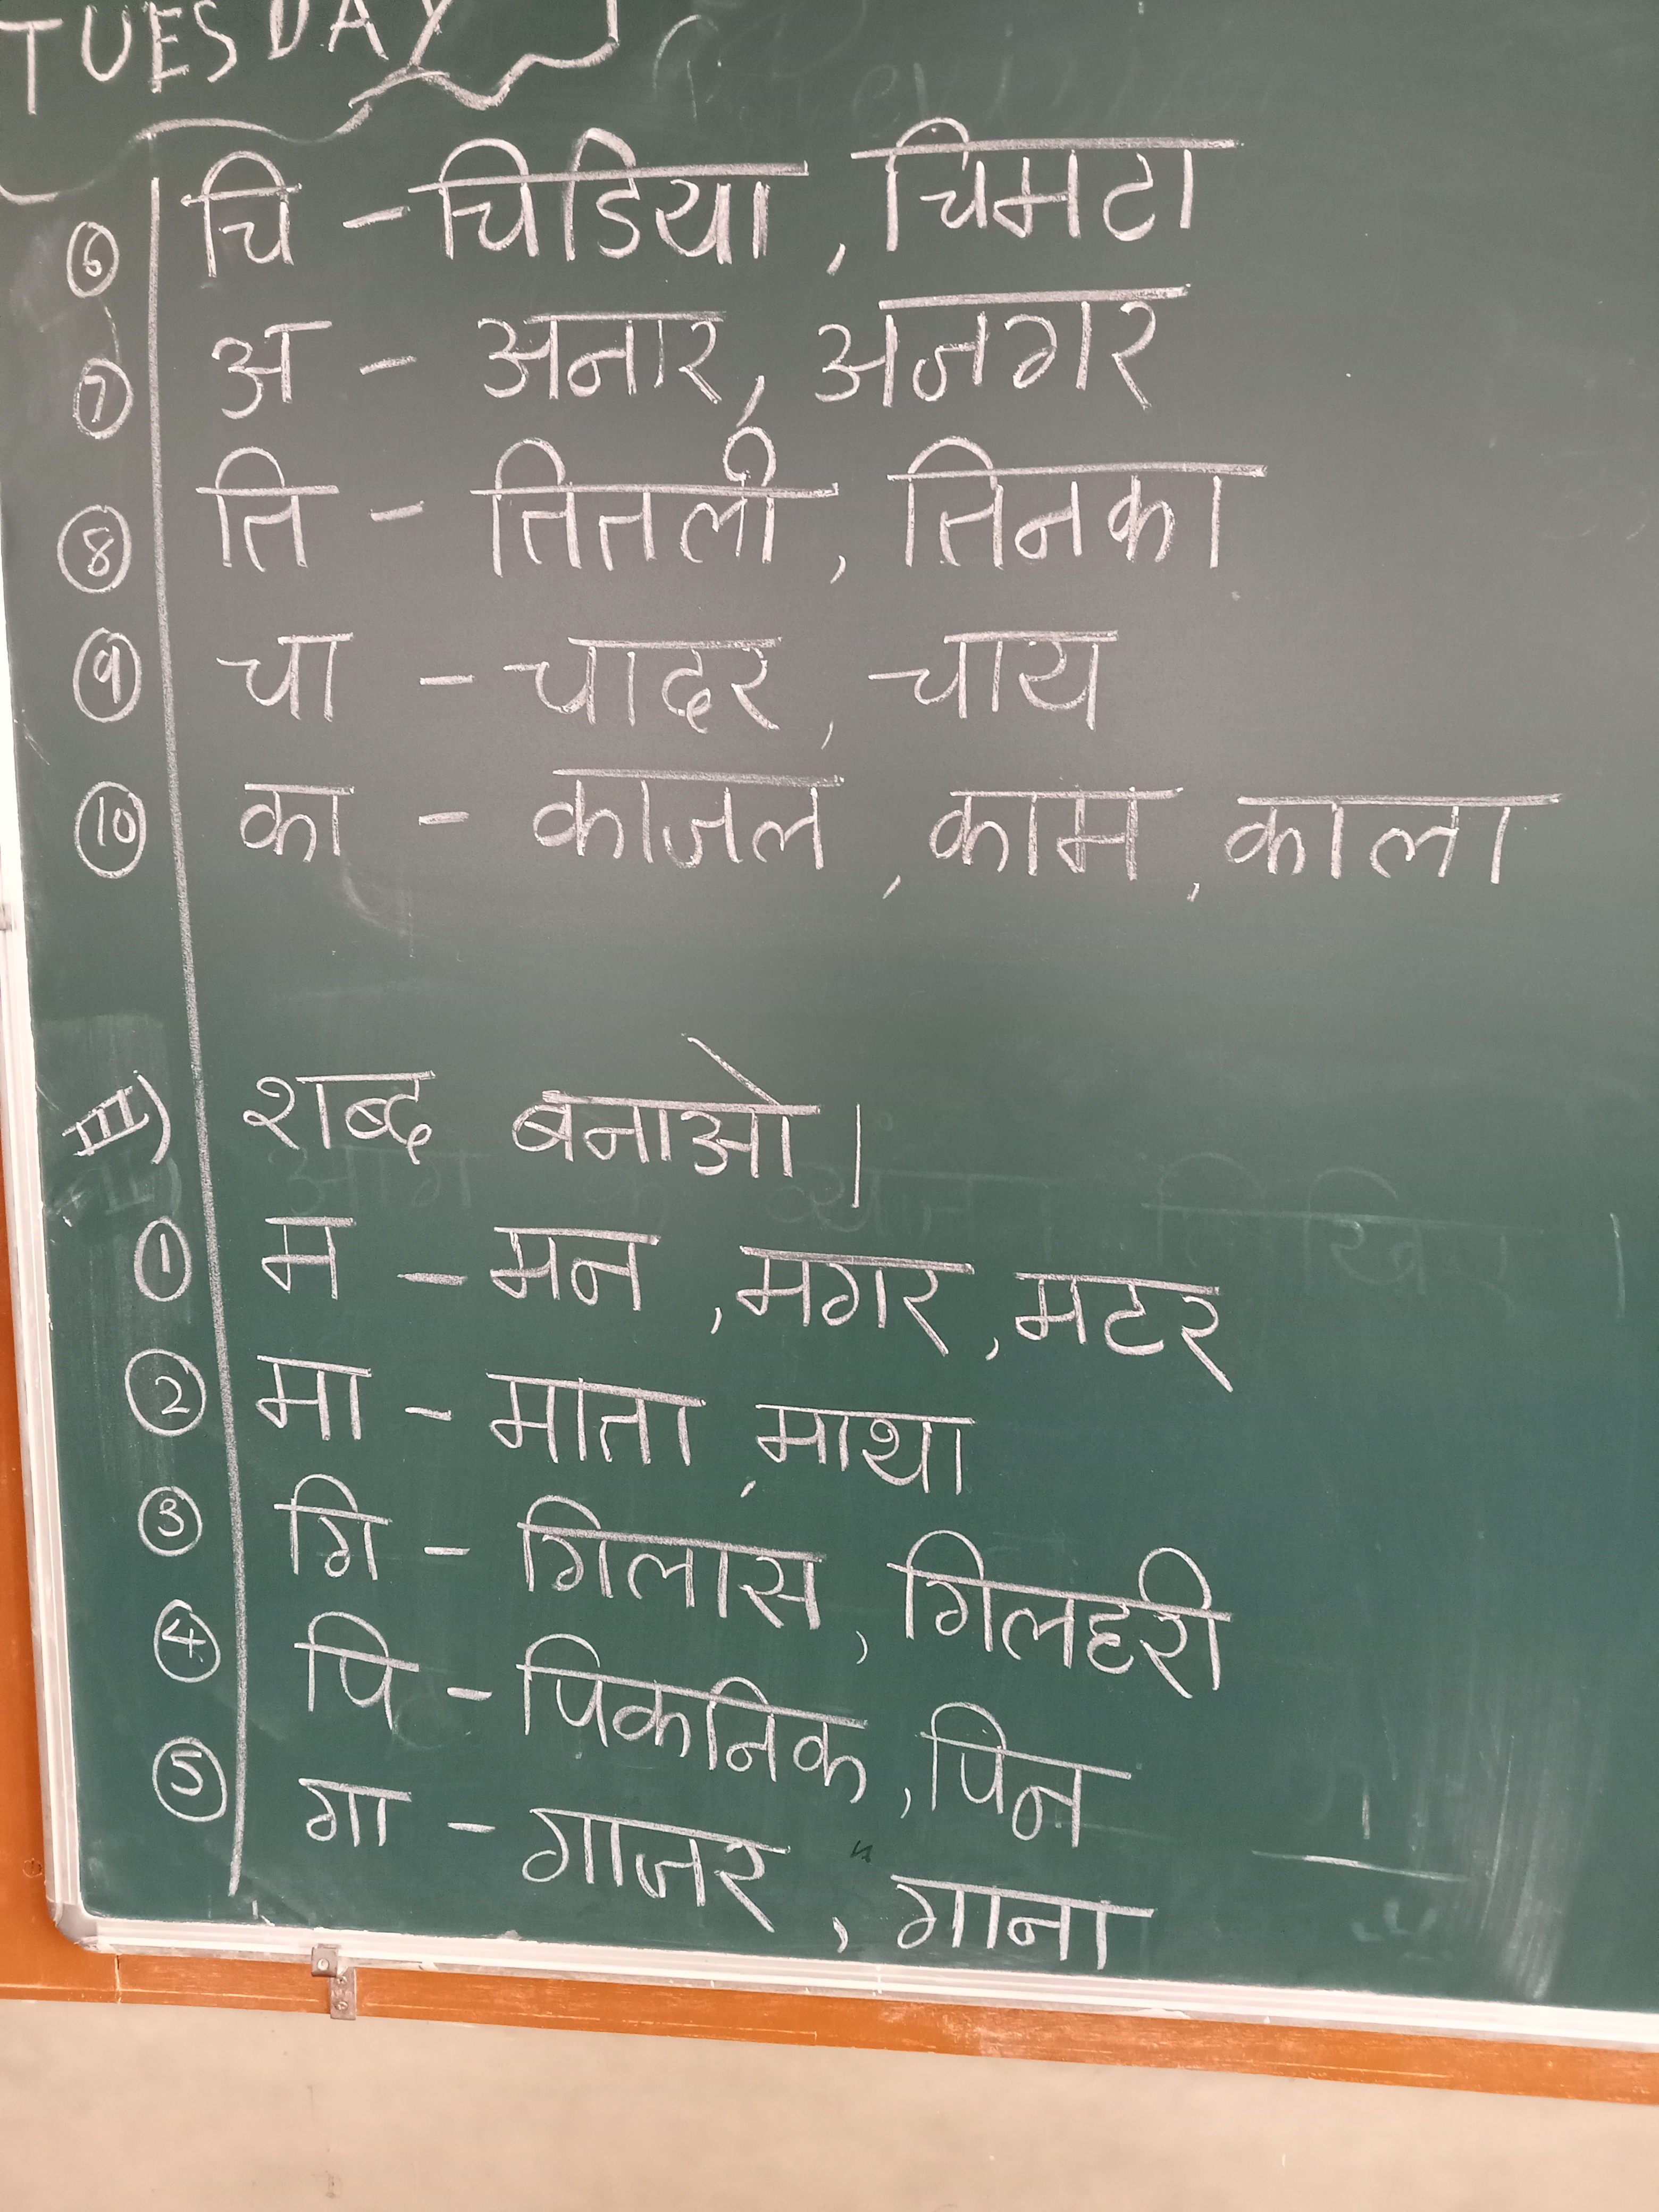 TUESDAY
⑥ चि - चिडिया, चिमटा
⑦ अ - अनार, अजगर
⑧ ति - तितली, तिनका
⑨ चा - चादर, चाय
⑩ का - काजल, काम, काला
III) शब्द बनाओ।
① म - मन, मगर, मटर
② मा - माता, माथा
③ गि - गिलास, गिलहरी
④ पि - पिकनिक, पिन
⑤ गा - गाजर, गाना